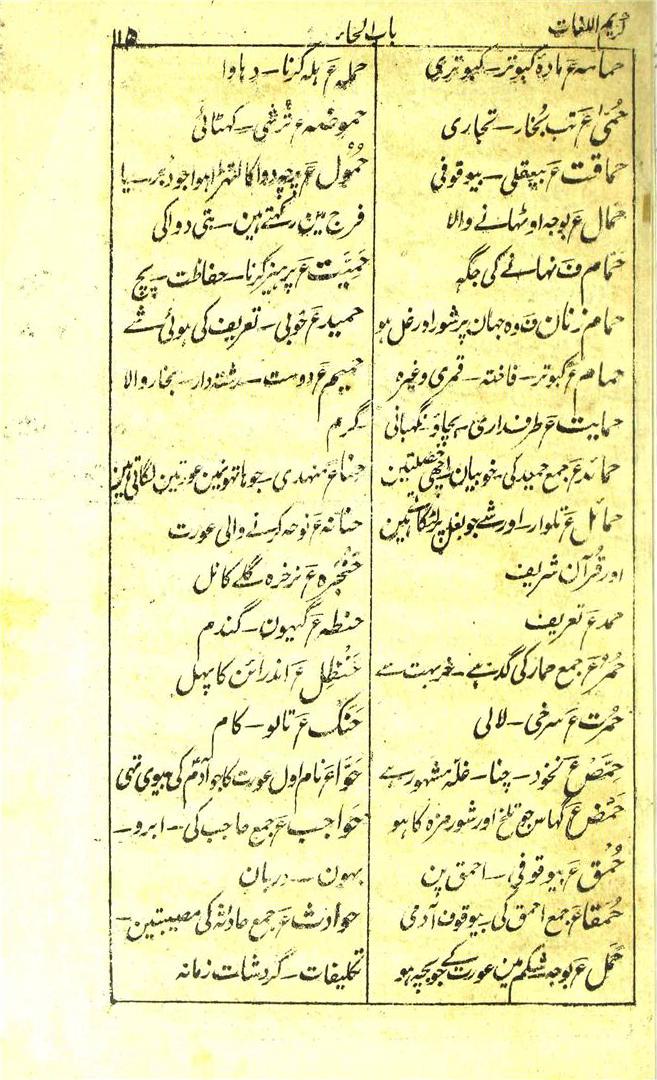 کریم اللغات
باب الحاء
۱۱۵
حمامہ ع مادہ کبوتر۔ کبوتری
حُمیٰ ع تب بخار۔ تجاری
حماقت ع بیعقلی۔ بیوقوفی
حمال ع بوجھ اوٹھانے والا
حمام ف نہانے کی جگہ
حمام زنان ف وہ جہان پر شور اور غل ہو
حمام ع کبوتر۔ فاختہ۔ قمری وغیرہ
حمایت ع طرفداری۔ بچاؤ۔ نگہبانی
حمائد ع جمع حمید کی۔ خوبیان۔ اچھی خصلتین
حمائل ع تلوار۔ اور شے جو بغل پر لٹکاتے ہین
اور قرآن شریف
حمد ع تعریف
حُمُر ع جمع حمار کی گدہے۔ خر بہت سے
حُمرت ع سرخی۔ لالی
حِمَّص ع نخود۔ چنا۔ غلہ مشہور ہے
حَمْض ع گہاس جو تلخ اور شور مزہ کا ہو
حُمق ع بیوقوفی۔ احمق پن
حُمقا ع جمع احمق کی بیوقوف آدمی
حَمل ع بوجھ شکم مین عورت کے جو بچہ ہو
حملہ ع ہلہ کرنا۔ دہاوا
حموضہ ع تُرشی۔ کہٹائی
حُمُول ع پرچہ دوا کا لتھڑا ہوا جو دُبر۔ یا
فرج مین رکہتے ہین۔ بتی دوا کی
حمیّت ع پرہیز کرنا۔ حفاظت۔ پچ
حمید ع خوبی۔ تعریف کی ہوئی شے
حمیم ع دوست۔ رشتہ دار۔ بخار والا
گرم
حنا ع منہدی۔ جو ہاتھونمین عورتین لگاتی ہین
حنانہ ع نوحہ کرنے والی عورت
حَنْجَرہ ع نرخرہ گلے کا نل
حنطہ ع گیہون۔ گندم
حَنْظَل ع اندرائن کا پہل
حَنَک ع تالو۔ کام
حَوّا ع نام اول عورت کا جو آدمؑ کی بیوی تہی
حواجب ع جمع حاجب کی۔ ابرو۔
بہون۔ دربان
حوادث ع جمع حادثہ کی مصیبتین۔
تکلیفات۔ گردشات زمانہ